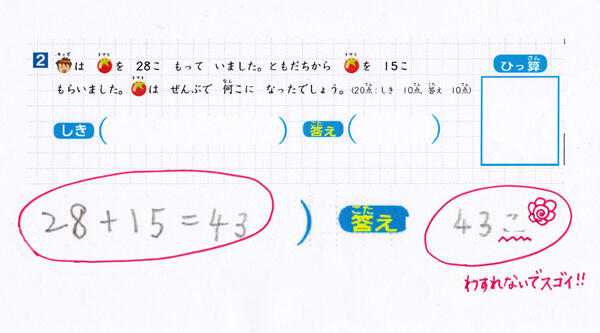 2 は を 28こ もって いました。ともだちから を 15こ
もらいました。 は ぜんぶで 何こに なったでしょう。(20点:しき 10点、答え 10点)
ひっ算
しき( ) 答え( )
28+15=43 ) 答え 43こ
わすれないでスゴイ!!